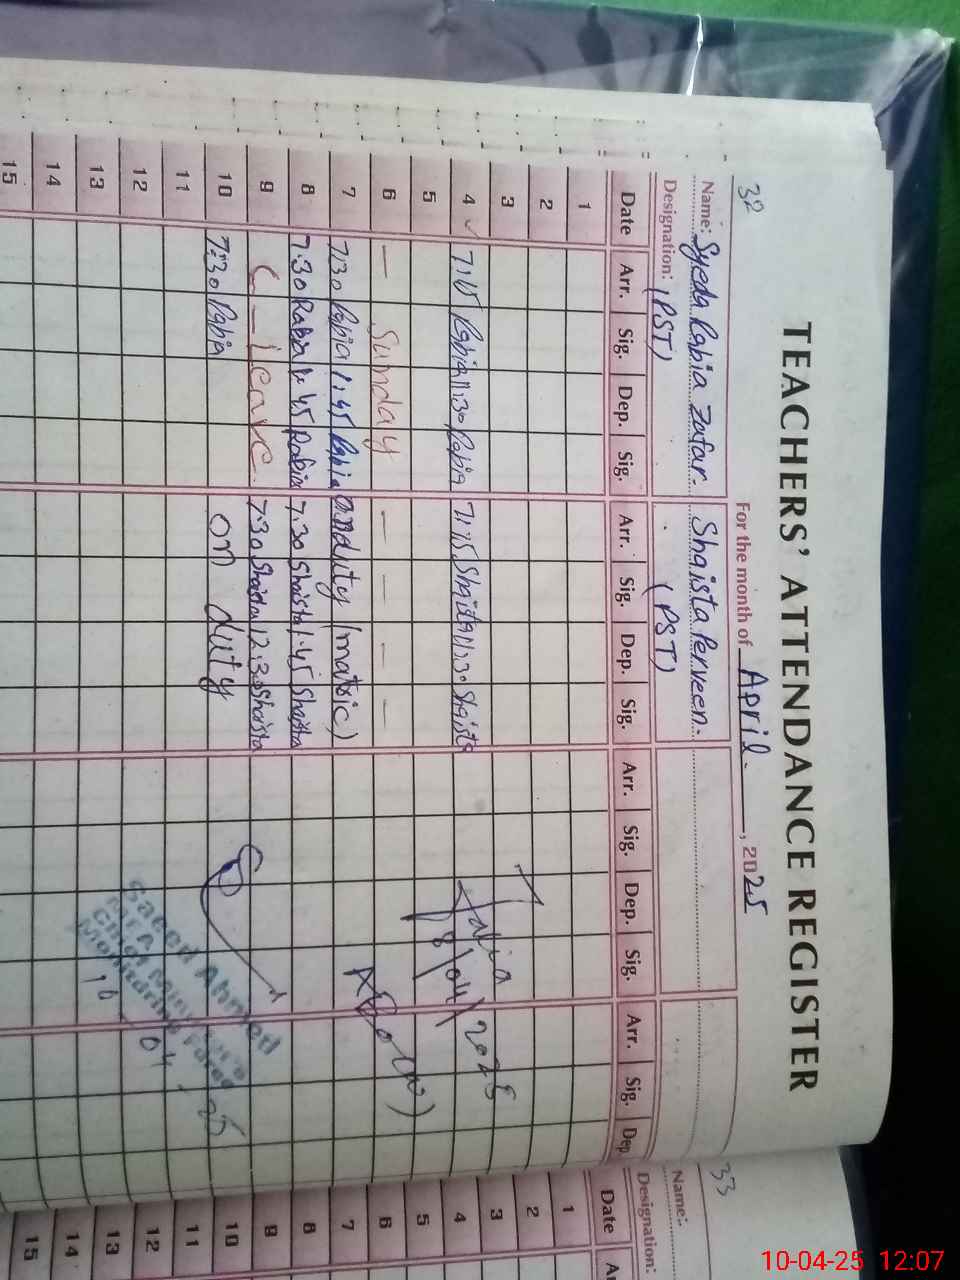 32
TEACHERS' ATTENDANCE REGISTER
For the month of April, 2025
Name: Syeda Rabia Zafar. Shaista Perveen.
Designation: (PST) (PST)
Date Arr. Sig. Dep. Sig. Arr. Sig. Dep. Sig. Arr. Sig. Dep. Sig. Arr. Sig. Dep
1
2
3
4 7:15 Rabia 11:30 Rabia 7:15 Shaista 11:30 Shaista
5
6 — Sunday — — — —
7 7:30 Rabia 1:45 Rabia on duty (matric)
8 7:30 Rabia 1:45 Rabia 7:30 Shaista 1:45 Shaista
9 C-leave 7:30 Shaista 12:30 Shaista
10 7:30 Rabia on duty
11
12
13
14
15
8/04/2025
Saeed Ahmed
MEA
Chief Minister's
Monitoring Force
10-04-25
33
Name:
Designation:
Date
1
2
3
4
5
6
7
8
9
10
11
12
13
14
15
10-04-25 12:07